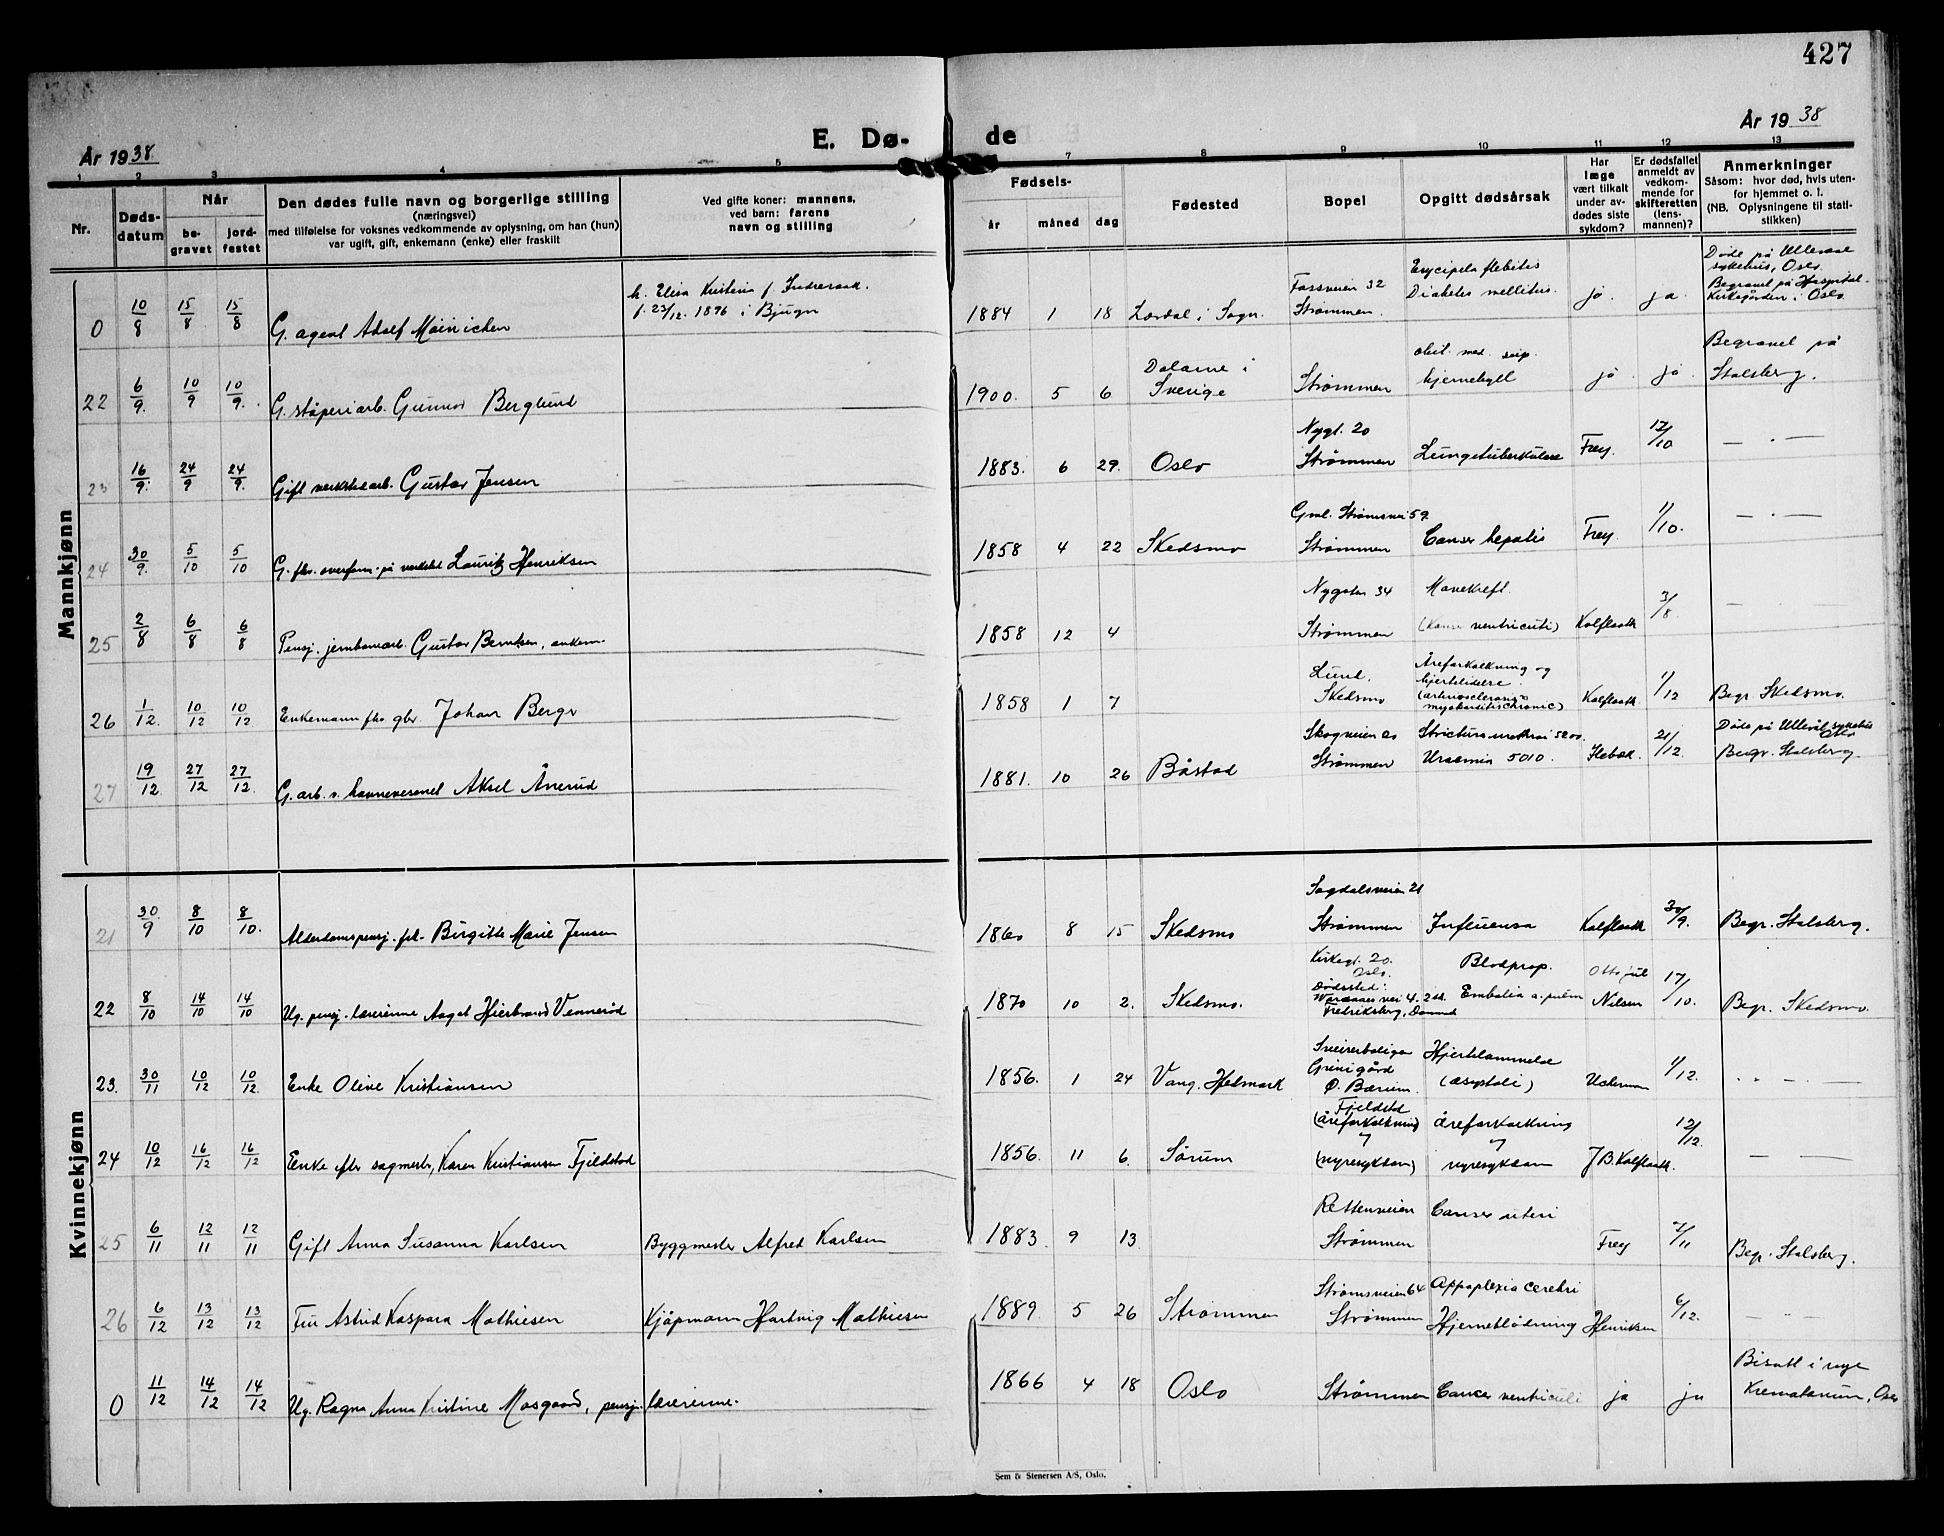 427
År 1938
E. Dø-
de
År 1938
1 2 3 4 5 7 8 9 10 11 12 13
Nr.
Døds-
datum
Når
be-
gravet
jord-
festet
Den dødes fulle navn og borgerlige stilling
(næringsvei)
med tilføielse for voksnes vedkommende av oplysning, om han (hun)
var ugift, gift, enkemann (enke) eller fraskilt
Ved gifte koner: mannens,
ved barn: farens
navn og stilling
Fødsels-
år måned dag
Fødested
Bopel
Opgitt dødsårsak
Har
læge
vært tilkalt
under av-
dødes siste
sykdom?
Er dødsfallet
anmeldt av
vedkom-
mende for
skifteretten
(lens-
mannen)?
Anmerkninger
Såsom: hvor død, hvis uten-
for hjemmet o. l.
(NB. Oplysningene til stati-
stikken)
Mannkjønn
0 10/8 15/8 15/8 G. agent Adolf Møinichen
h. Elisa Kristina f.
f. 23/12. 1896 i Bjugn
1884 1 18 Lærdal i Sogn.
Fossveien 32
Strømmen.
flebitis
Diabetes mellitus.
ja ja.
Døde på Ullevaal
sykehus, Oslo.
Begravet på Hospital-
kirkegården i Oslo.
22 6/9. 10/9 10/9. G. støperiarb. Gunnar Berglund
1900. 5 6
Dalarne i
Sverige
Strømmen
hjernebyll
ja. ja.
Begravet på
Stalsberg.
23 16/9. 24/9 24/9. Gift verkstedarb. Gustav Jensen
1883. 6 29. Oslo
Nygt. 20
Strømmen
Lungetuberkulose
Frey. 17/10 — . —
24 30/9. 5/10 5/10 G. fhv. overform. på verksted Lauritz Henriksen
1858 4 22 Skedsmo
Gml. Strømsvei 59.
Strømmen
Cancer hepatis
Frey. 1/10. — . —
25 2/8 6/8 6/8 Pensj. jernbanearb. Gustav Berntsen, enkem.
1858 12 4
Nygaten 34
Strømmen
Mavekreft.
(Kancer ventriculi)
Kalfloath 3/8 — —
26 1/12. 10/12 10/12. Enkemann fhv. gbr. Johan Berge
1858 1 7
Lund,
Skedsmo
Åreforkalkning og
hjertelidelse.
(arteriosclerosis
myokarditis chronic)
Kalfloath 1/12 Begr. Skedsmo.
27 19/12 27/12 27/12. G. arb. v. havnevesenet Aksel Ånerud
1881. 10 26 Båstad
Skogveien 20
Strømmen
Strictura urethrae 5200.
Uraemia 5010.
21/12.
Døde på Ullevål sykehus
Oslo
Begr. Stalsberg.
Kvinnekjønn
21 30/9 8/10 8/10. Alderdomspensj. frk. Birgitte Marie Jensen
1860 8 15 Skedsmo
Sagdalsveien 21
Strømmen
Influensa
Kalfloath 30/9. Begr. Stalsberg.
22 8/10 14/10 14/10 Ug. pensj. lærerinne Aagot Hjerbrand Vennerød
1870 10 2. Skedsmo.
Kirkegt. 20.
Oslo.
Dødssted:
vei 4. 2 sd.
Fredriksberg, Danmark
Blodprop.
Embolia a. pulm
Otto Juul
Nilsen
17/10. Begr. Skedsmo.
23. 30/11 10/12 10/12. Enke Olive Kristiansen
1856. 1 24 Vang. Hedmark
Sveiserboligen
Grini gård
Ø. Bærum.
Hjertelammelse
(asystoli)
1/12. " . — . —
24 10/12 16/12 16/12 Enke efter sagmester, Karen Kristiansen Fjeldstad
1856. 11 6. Sørum
Fjeldstad
(åreforkalkning
og
nyresykdom)
åreforkalkning
og
nyresykdom
J B. Kalfloath. 12/12. — —
25 6/11 12/11 12/11 Gift Anna Susanna Karlsen
Byggmester Alfred Karlsen
1883. 9 13.
Rettenveien
Strømmen
Cancer uteri
Frey 7/11 Begr. Stalsberg.
26 6/12 13/12 13/12 Fru Astrid Kaspara Mathiesen
Kjøpmann Hartvig Mathiesen
1889. 5 26 Strømmen
Strømsveien 64
Strømmen
Appoplexia cerebri
Hjerneblødning
Henriksen 6/12. — —
0 11/12 14/12 14/12 Ug. Ragna Anna Kristine Mosgaard, pensj. lærerinne.
1866 4 18 Oslo
Strømmen
Cancer ventriculi
ja ja
Bisatt i nye
Krematorium, Oslo
Sem & Stenersen A/S, Oslo.